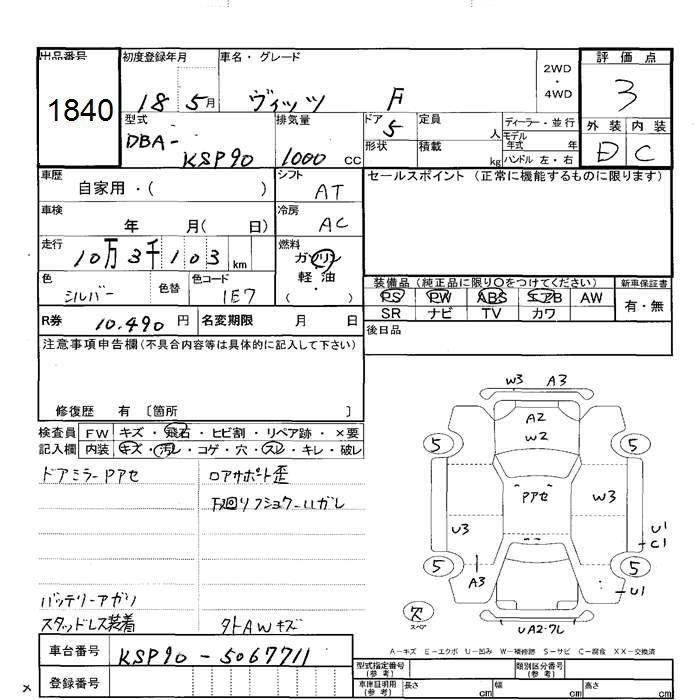 出品番号 初度登録年月 車名・グレード 2WD ・ 4WD 評価点
1840 18 5月 ヴィッツ F 3
型式 排気量 ドア 定員 人 ディーラー・並行 外装 内装
DBA- KSP90 1000 cc 5 モデル年式 年
形状 積載 kg ハンドル 左・右 D C
車歴 自家用・( ) シフト AT セールスポイント(正常に機能するものに限ります)
車検 年 月( 日) 冷房 AC
走行 10万3千103 km 燃料 ガソリン
軽・油
・( )
色 シルバー 色替 色コード 1E7
装備品(純正品に限り○をつけてください) 新車保証書
PS PW ABS エアB AW 有・無
SR ナビ TV カワ
R券 10.490 円 名変期限 月 日 後日品
注意事項申告欄(不具合内容等は具体的に記入して下さい)
修復歴 有 〔箇所 〕
検査員 FW キズ・飛石・ヒビ割・リペア跡・×要
記入欄 内装 キズ・汚レ・コゲ・穴・スレ・キレ・破レ
ドアミラーPアセ ロアサポート歪
下廻リフショクーLLガレ
バッテリーアガリ
スタッドレス装着 タトAWキズ
W3 A3
A2
W2
5 5
Pアセ W3
U3 U1
C1
5 5
A3 U1
欠
スペ UA2・ワレ
A-キズ E-エクボ U-凹み W-補修跡 S-サビ C-腐食 XX-交換済
車台番号 KSP90-5067711
登録番号
型式指定番号(参考) 類別区分番号(参考)
車庫証明用(参考) 長さ cm 幅 cm 高さ cm
×